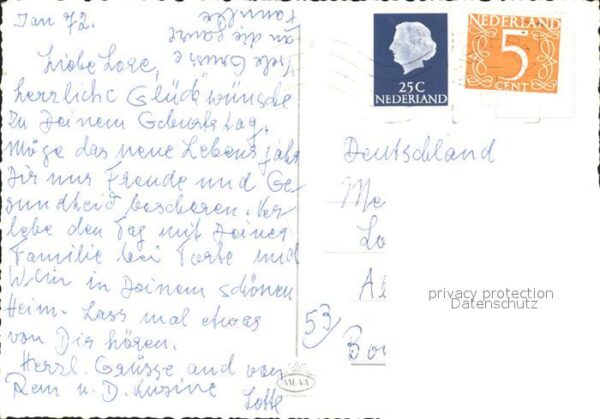 Jan 72.
Liebe Lore,
herzliche Glückwünsche
zu Deinem Geburtstag.
Möge das neue Lebensjahr
Dir nur Freude und Ge
sundheid bescheren. Ver
lebe den Tag mit Deiner
Familie bei Torte und
Wein in Deinem schönen
Heim. Lass mal etwas
von Dir hören.
Herzl. Grüsse and von
Rem u. D. Kusine
Lotte
Viele Grüsse
an die ganze
Familie
25C
NEDERLAND
NEDERLAND
5
CENT
Deutschland
Me
Lo
Al
53
Bon
privacy protection
Datenschutz